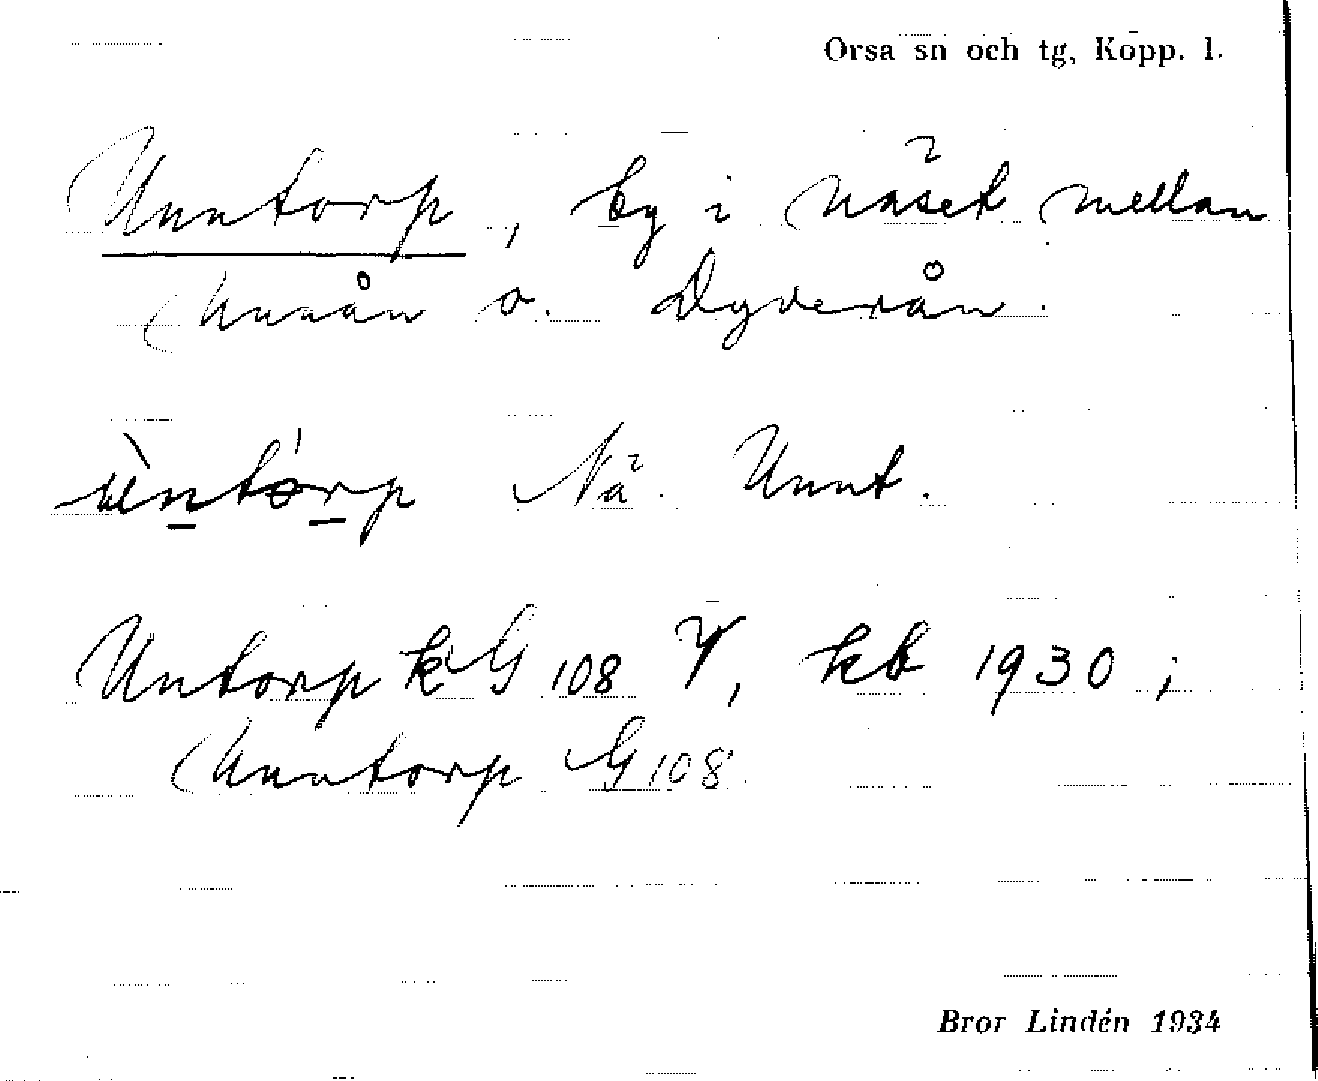 Orsa sn och tg, Kopp. l.
Unntorp, by i näset mellan
Unnån o. Dyverån.
ùntórp Nä. Unnt.
Untorp k G 108 Y, kb 1930;
Unntorp G 108
Bror Lindén 1934